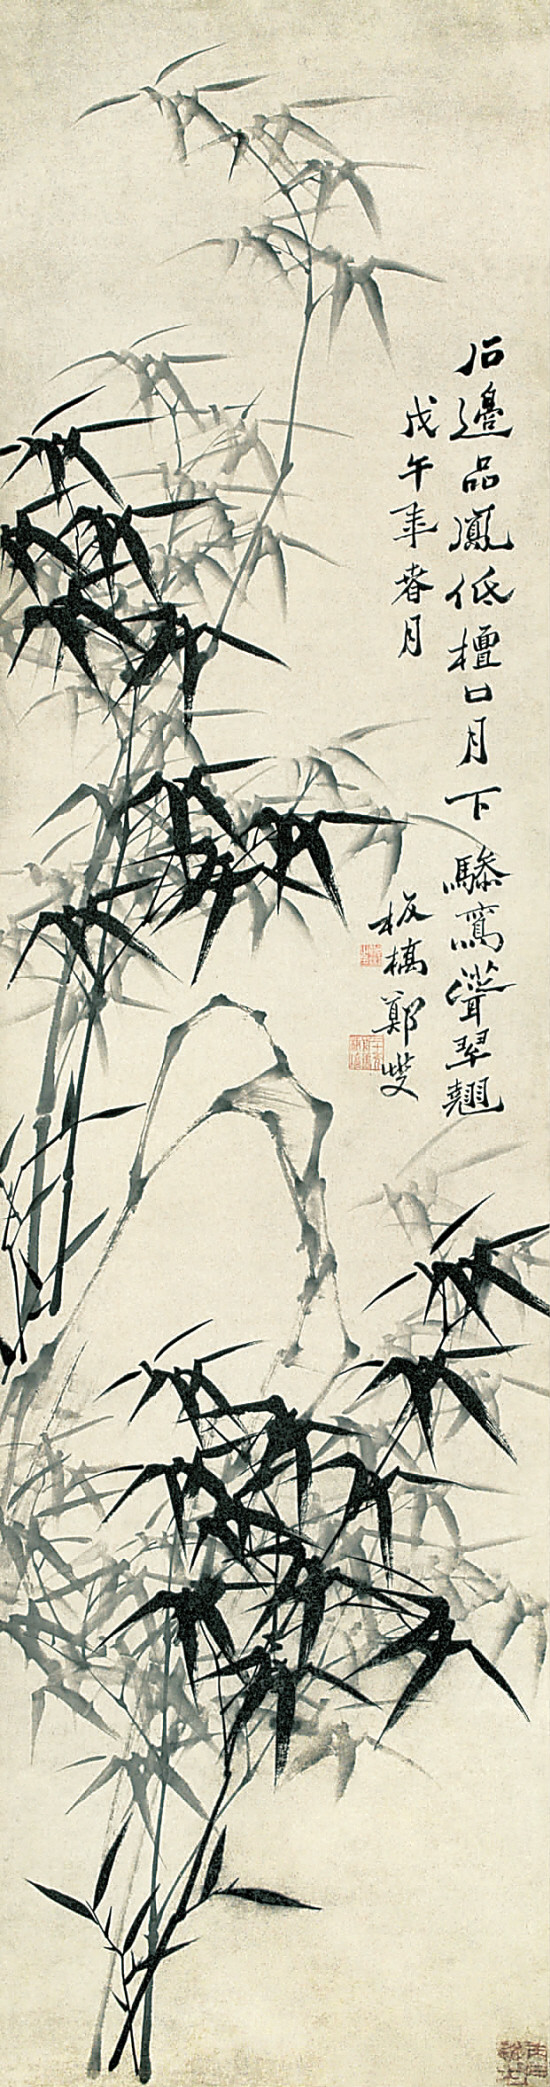 石邊品鳳低檀口月下驂鸞聳翠翹
戊午年春月
板橋鄭燮